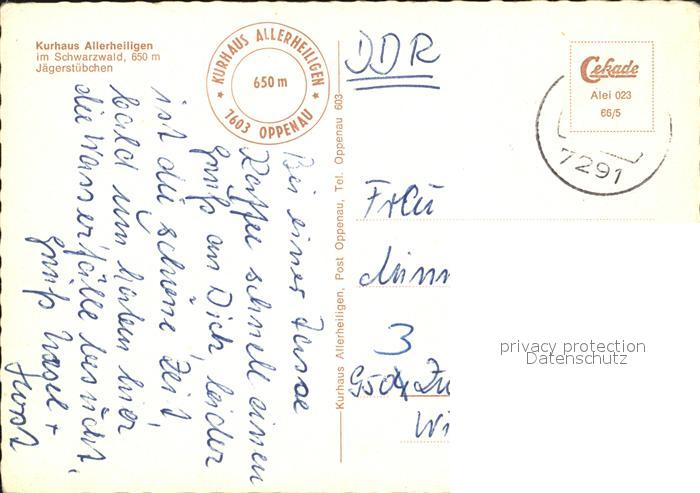 Kurhaus Allerheiligen
im Schwarzwald, 650 m
Jägerstübchen
KURHAUS ALLERHEILIGEN
650 m
7603 OPPENAU
Bei einer Tasse
Kaffee schnell einen
Gruß an Dich, leider
ist die schöne Zeit,
bald um haben hier
die Wasserfälle besucht.
Gruß
Horst
Kurhaus Allerheiligen, Post Oppenau, Tel. Oppenau 603
DDR
Cekade
Alei 023
66/5
7291
Frau
3
privacy protection
Datenschutz